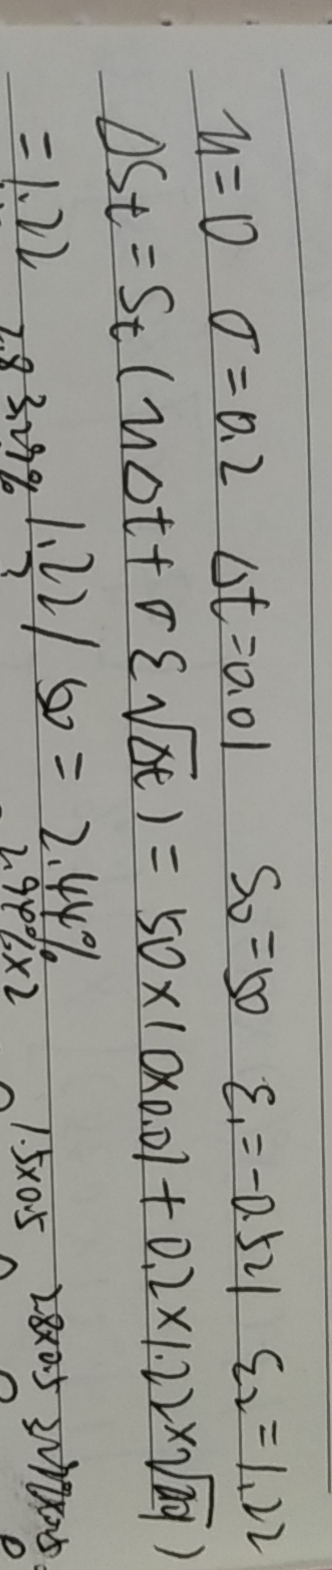 μ=0 σ=0.2 Δt=0.01 S₀=50 ε₁=-0.521 ε₂=1.22
ΔSt=St(μΔt+σε√Δt)=50×(0×0.01+0.2×1.22×√0.01)
=1.22 1.22/50=2.44%
1.5×0.5 2.8×0.5